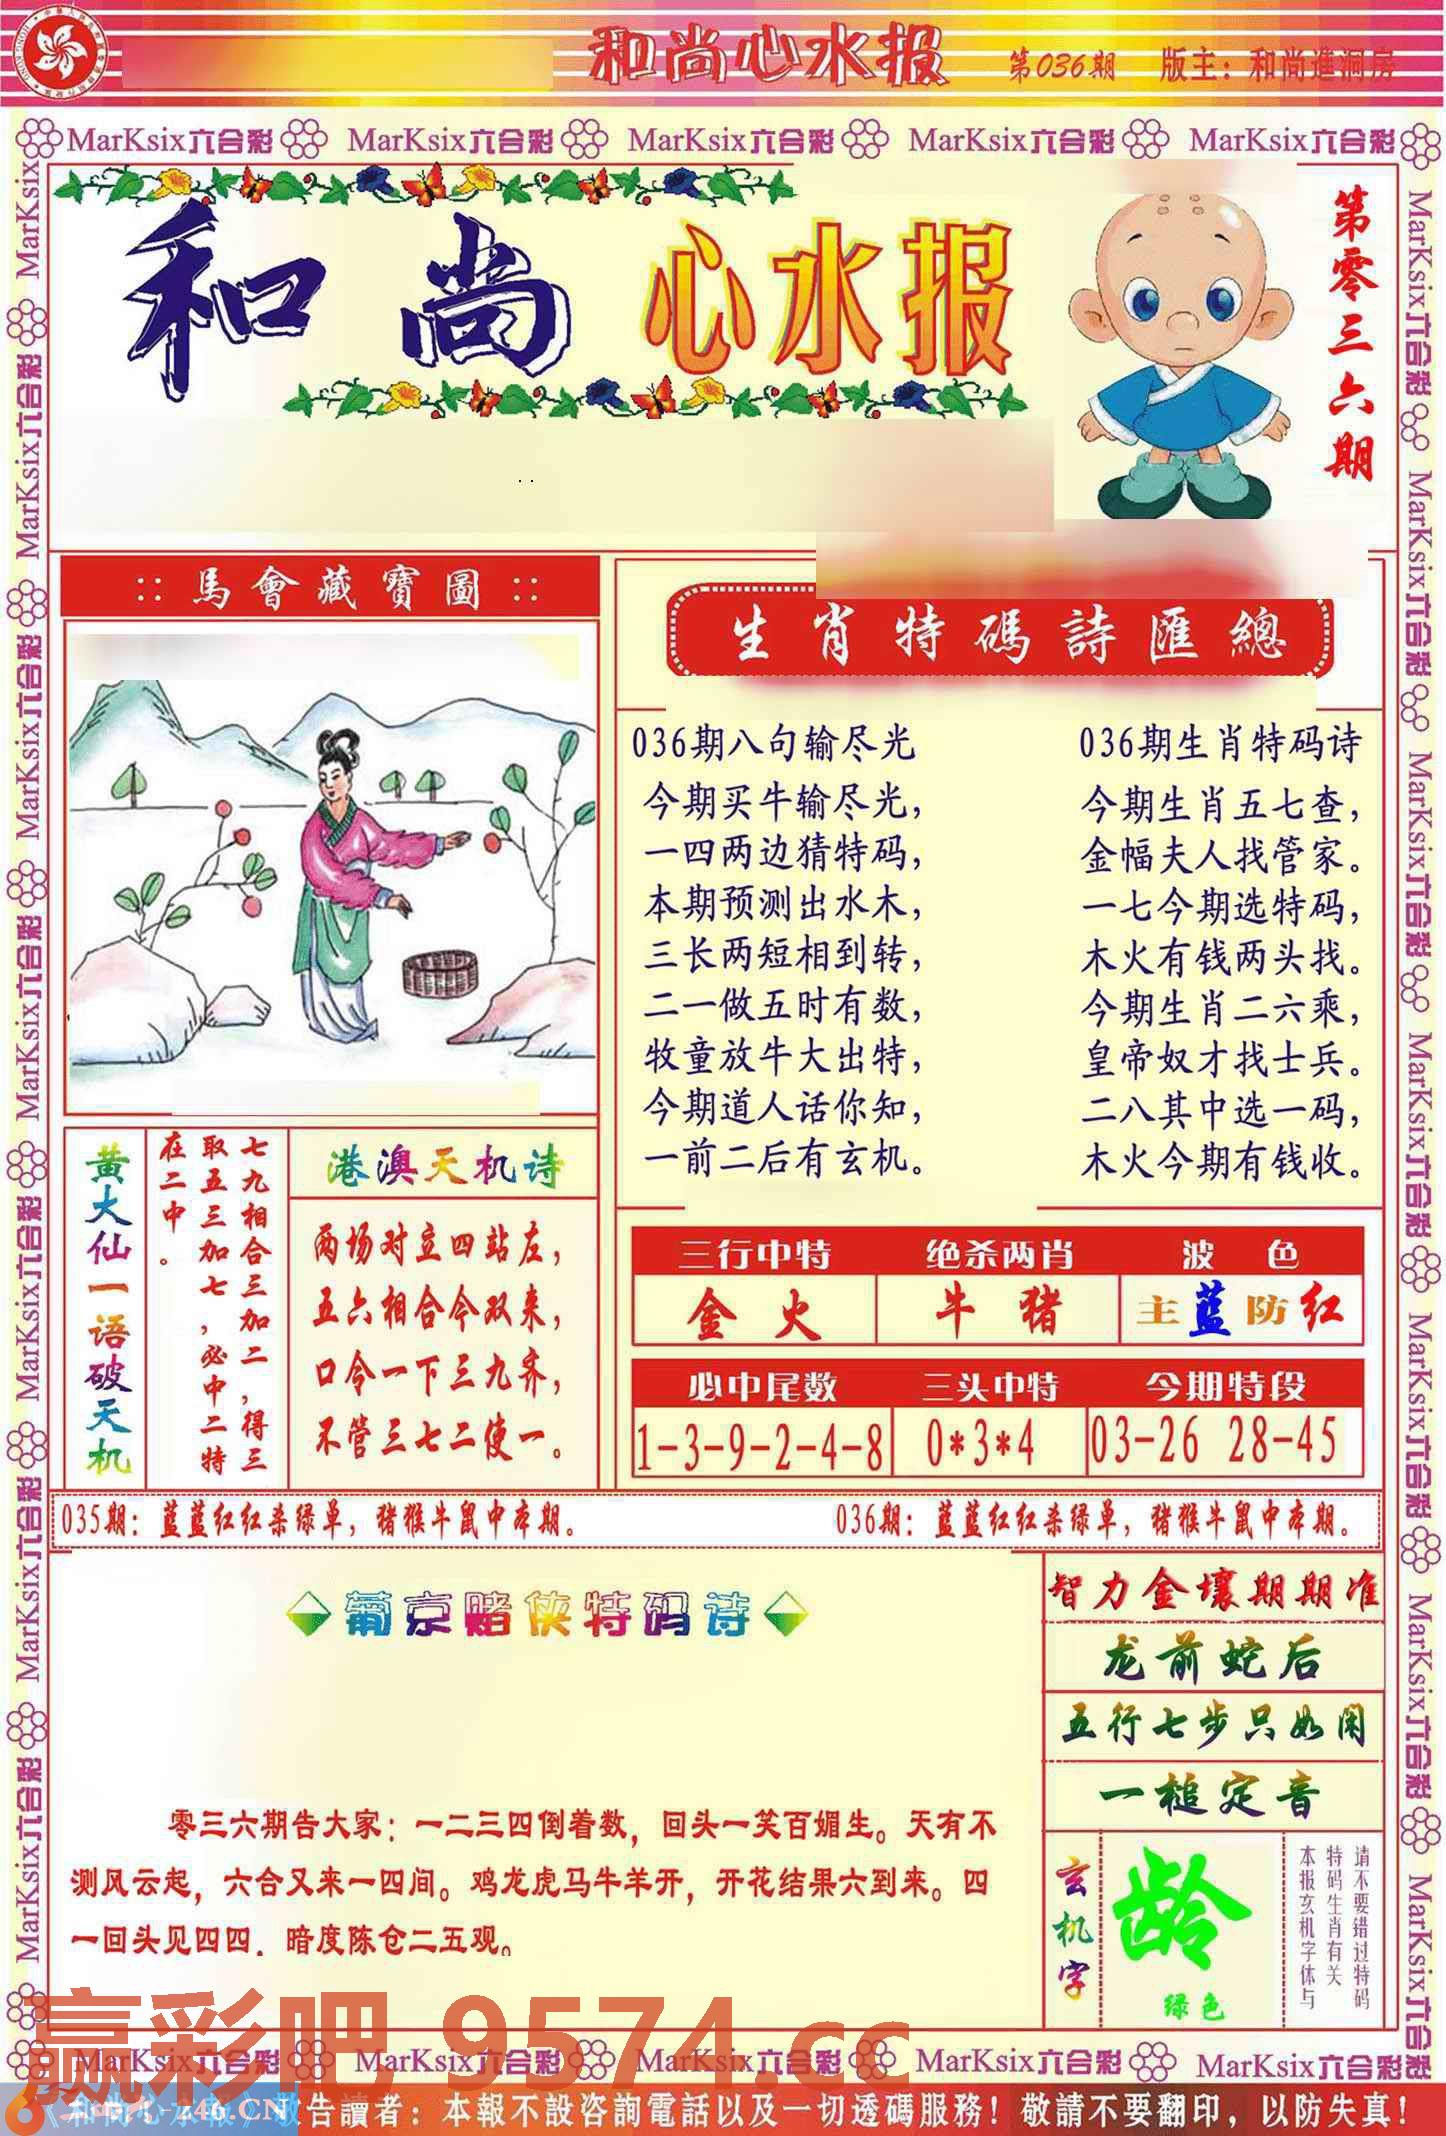 和尚心水报
第036期
版主：和尚進洞房
MarKsix六合彩 MarKsix六合彩 MarKsix六合彩 MarKsix六合彩 MarKsix六合彩
和尚 心水报
第零三六期
:: 馬會藏寶圖 ::
生肖特碼詩匯總
036期八句输尽光
今期买牛输尽光，
一四两边猜特码，
本期预测出水木，
三长两短相到转，
二一做五时有数，
牧童放牛大出特，
今期道人话你知，
一前二后有玄机。
036期生肖特码诗
今期生肖五七查，
金幅夫人找管家。
一七今期选特码，
木火有钱两头找。
今期生肖二六乘，
皇帝奴才找士兵。
二八其中选一码，
木火今期有钱收。
黄大仙一语破天机
七九相合三加二，得三
取五三加七，必中二特
在二中。
港澳天机诗
两场对立四站左，
五六相合今双来，
口令一下三九齐，
不管三七二使一。
三行中特 绝杀两肖 波色
金火 牛猪 主蓝防红
必中尾数 三头中特 今期特段
1-3-9-2-4-8 0*3*4 03-26 28-45
035期：蓝蓝红红杀绿单，猪猴牛鼠中本期。
036期：蓝蓝红红杀绿单，猪猴牛鼠中本期。
葡京赌侠特码诗
零三六期告大家：一二三四倒着数，回头一笑百媚生。天有不
测风云起，六合又来一四间。鸡龙虎马牛羊开，开花结果六到来。四
一回头见四四．暗度陈仓二五观。
智力金壤期期准
龙前蛇后
五行七步只如闲
一槌定音
玄机字
龄
绿色
请不要错过特码
特码生肖有关
本报玄机字体与
赢彩吧 9574.cc
MarKsix六合彩 MarKsix六合彩 MarKsix六合彩 MarKsix六合彩 MarKsix六合彩
《和尚心水报》敬告讀者：本報不設咨詢電話以及一切透碼服務！敬請不要翻印，以防失真！